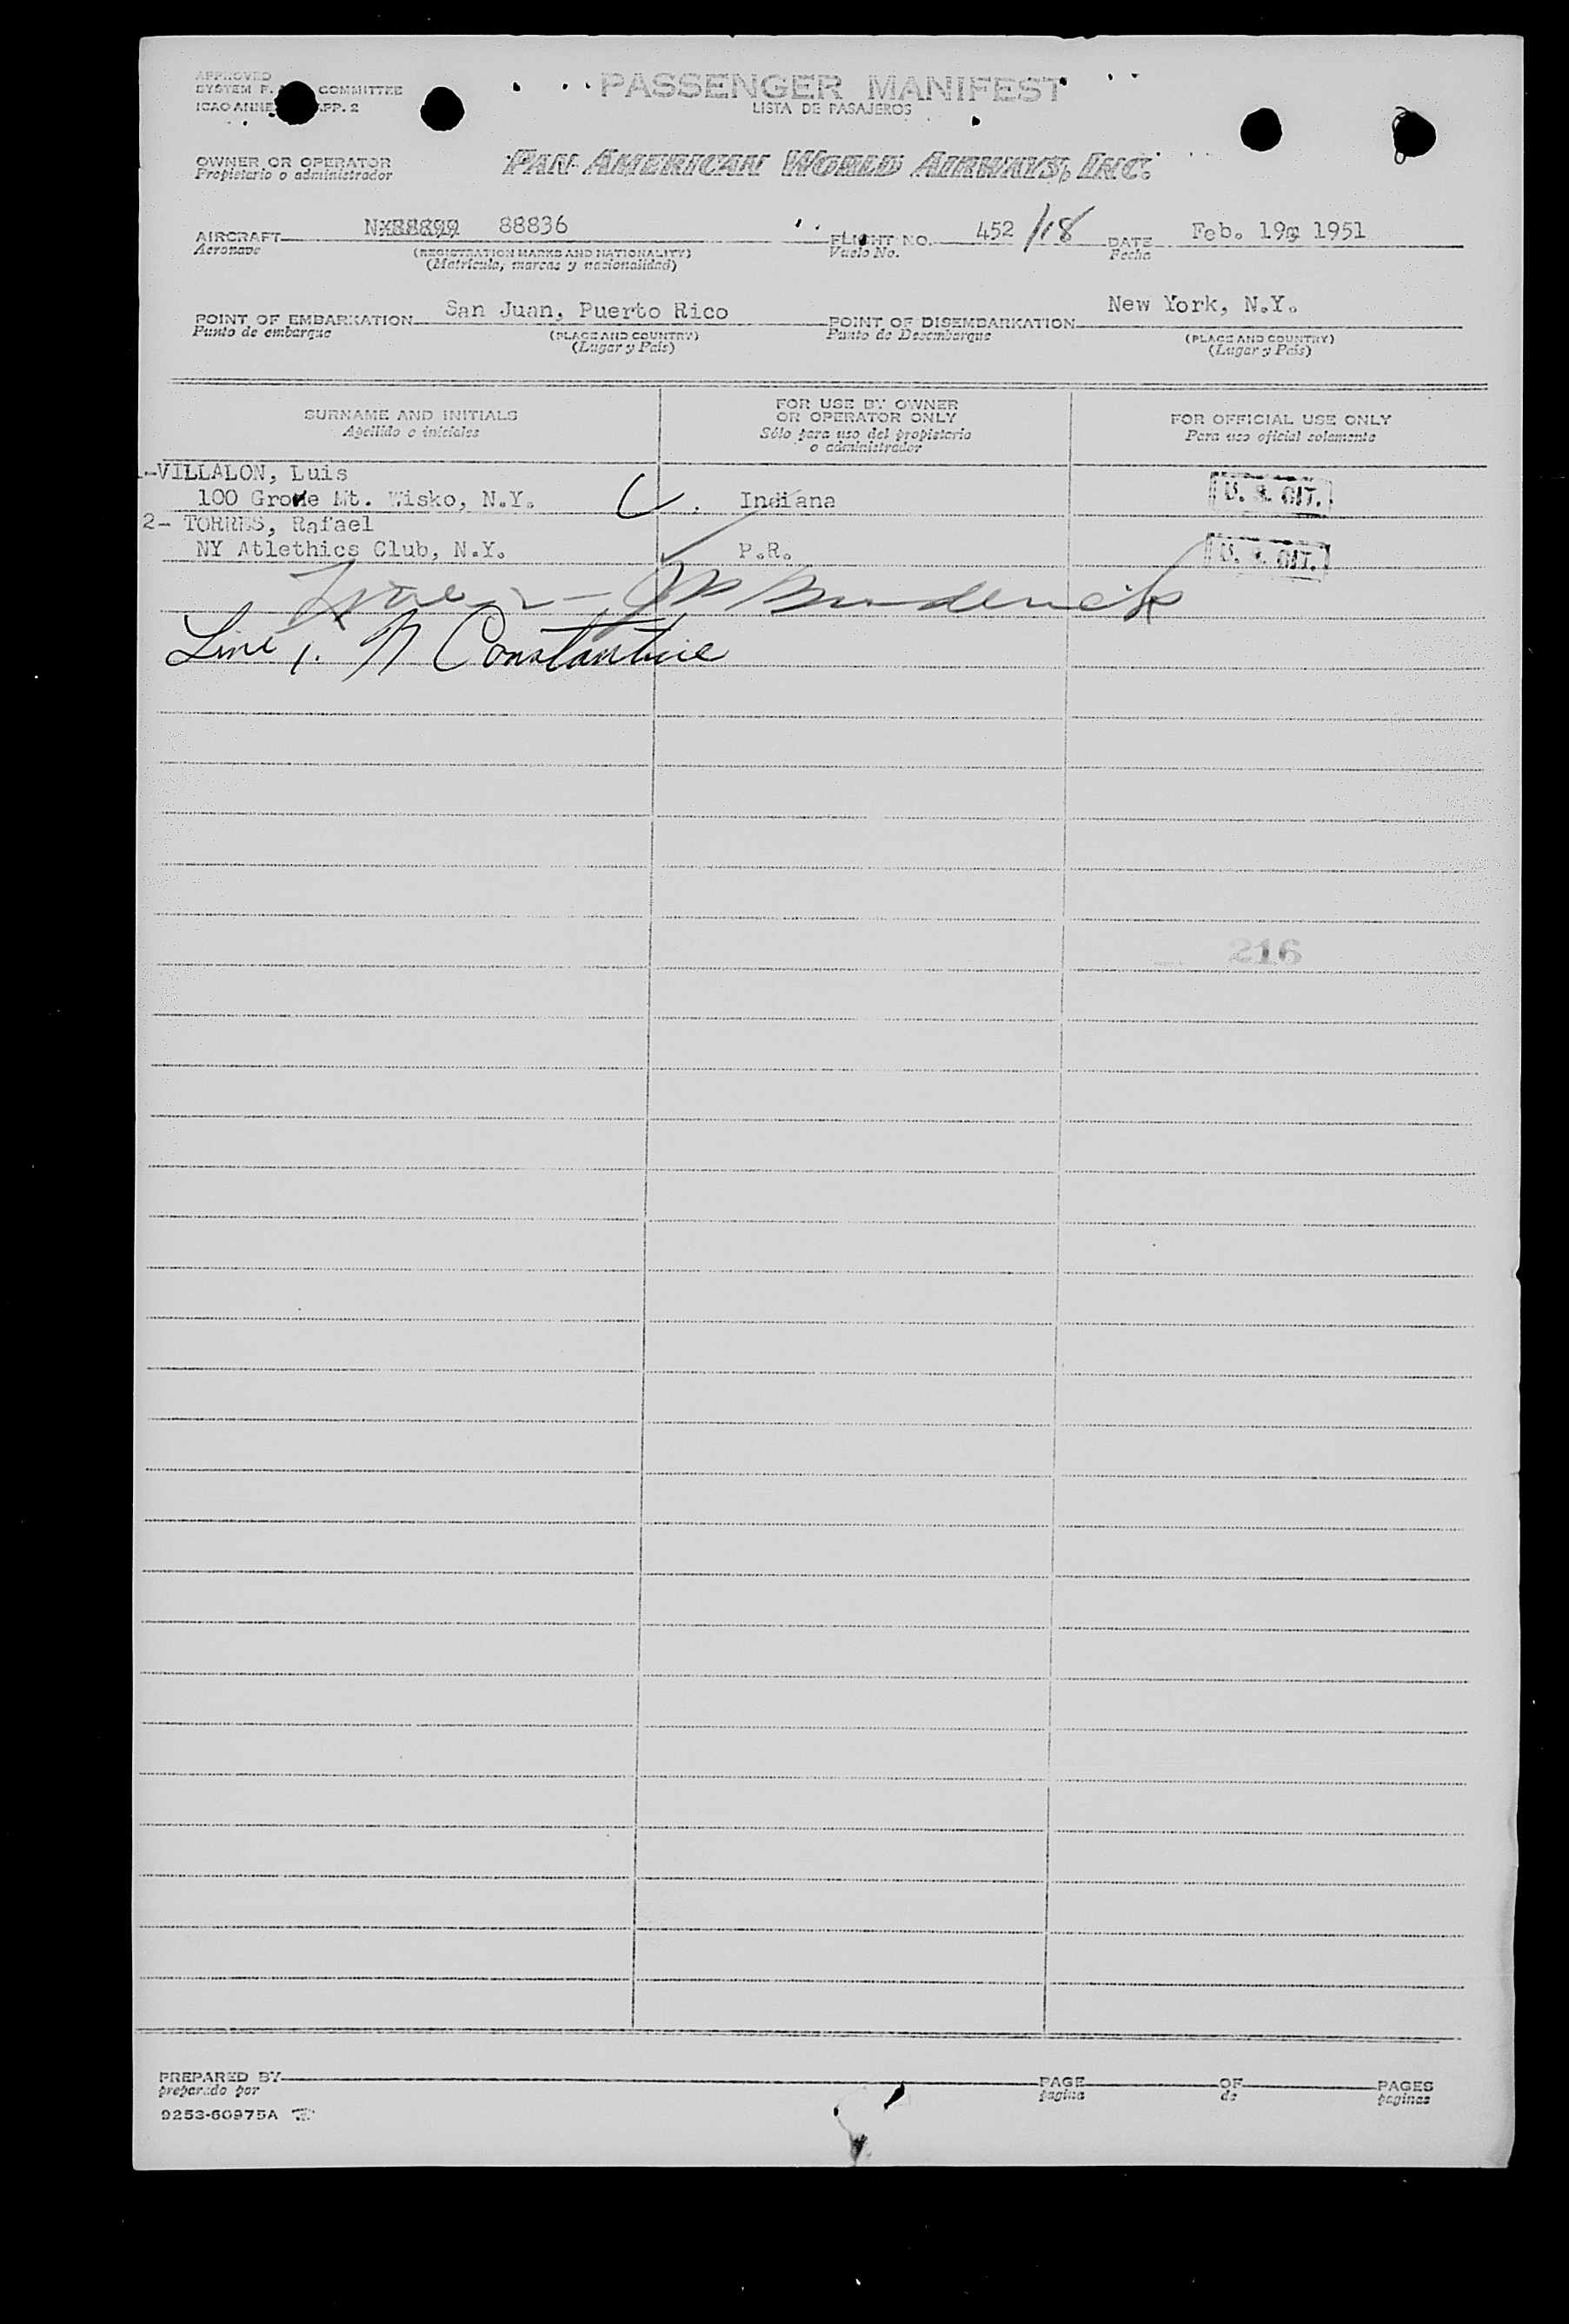 APPROVED
SYSTEM F. COMMITTEE
ICAO ANNE APP. 2
PASSENGER MANIFEST
LISTA DE PASAJEROS
OWNER OR OPERATOR
Propietario o administrador
PAN AMERICAN WORLD AIRWAYS, INC.
AIRCRAFT 88836
Aeronave
(REGISTRATION MARKS AND NATIONALITY)
(Matricula, marcas y nacionalidad)
FLIGHT NO. 452 /18
Vuelo No.
DATE Feb. 19, 1951
Fecha
POINT OF EMBARKATION San Juan, Puerto Rico
Punto de embarque
(PLACE AND COUNTRY)
(Lugar y País)
POINT OF DISEMBARKATION New York, N.Y.
Punto de Desembarque
(PLACE AND COUNTRY)
(Lugar y País)
SURNAME AND INITIALS
Apellido e iniciales
FOR USE BY OWNER
OR OPERATOR ONLY
Sólo para uso del propietario
o administrador
FOR OFFICIAL USE ONLY
Para uso oficial solamente
-VILLALON, Luis
100 Grove Mt. Wisko, N.Y. Indiana U. S. CIT.
2- TORRES, Rafael
NY Atlethics Club, N.Y. P.R. U. S. CIT.
Line 1. N Constantine
216
PREPARED BY
preparado por
PAGE OF PAGES
pagina de paginas
9253-60975A